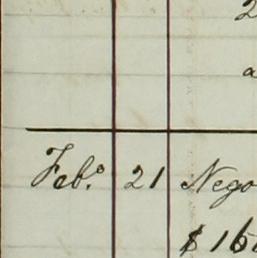 2
a
Feb.º 21 Nego
$ 16